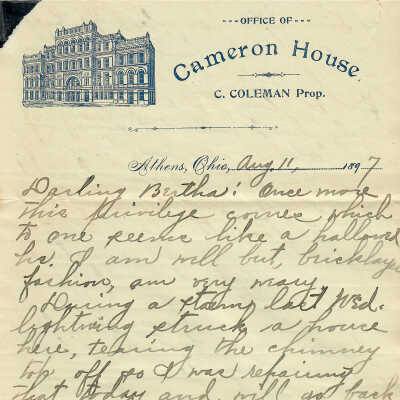 OFFICE OF
Cameron House
C. COLEMAN Prop.
Athens, Ohio, Aug. 11, 1897
Darling Bertha: Once more
this privilege comes which
to one seems like a hallowed
I am well but, bricklayer
fashion, am very
During a storm last Wed.
lightning struck a house
here, tearing the chimney
top off so I was repairing
that today and will go back